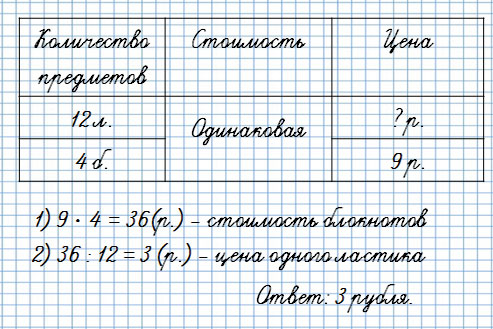 Количество Стоимость Цена
предметов
12 л. Одинаковая ? р.
4 б. 9 р.
1) 9 · 4 = 36 (р.) – стоимость блокнотов
2) 36 : 12 = 3 (р.) – цена одного ластика
Ответ: 3 рубля.